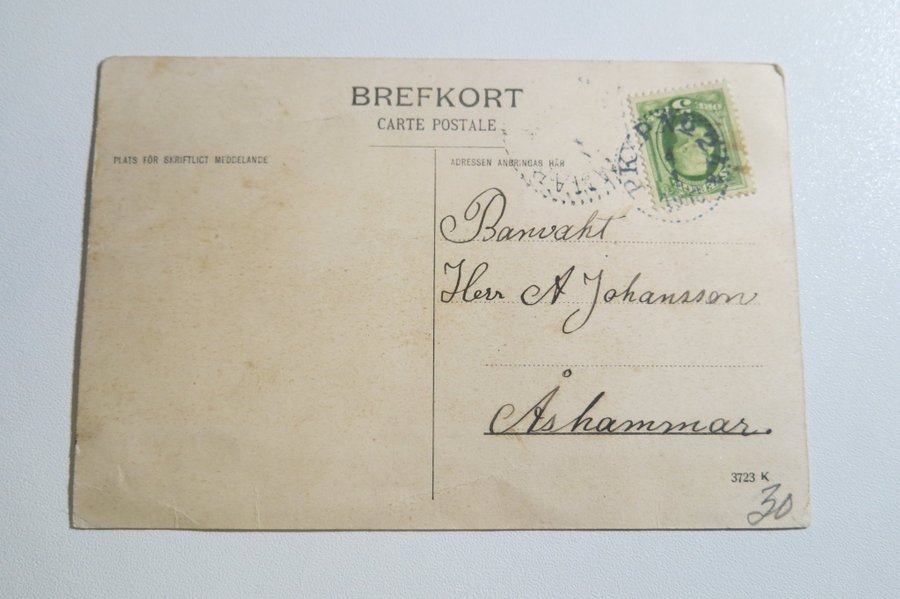 BREFKORT
CARTE POSTALE
PLATS FÖR SKRIFTLIGT MEDDELANDE
ADRESSEN ANBRINGAS HÄR
PKXP
Banvakt
Herr A Johansson
Åshammar.
3723 K
30